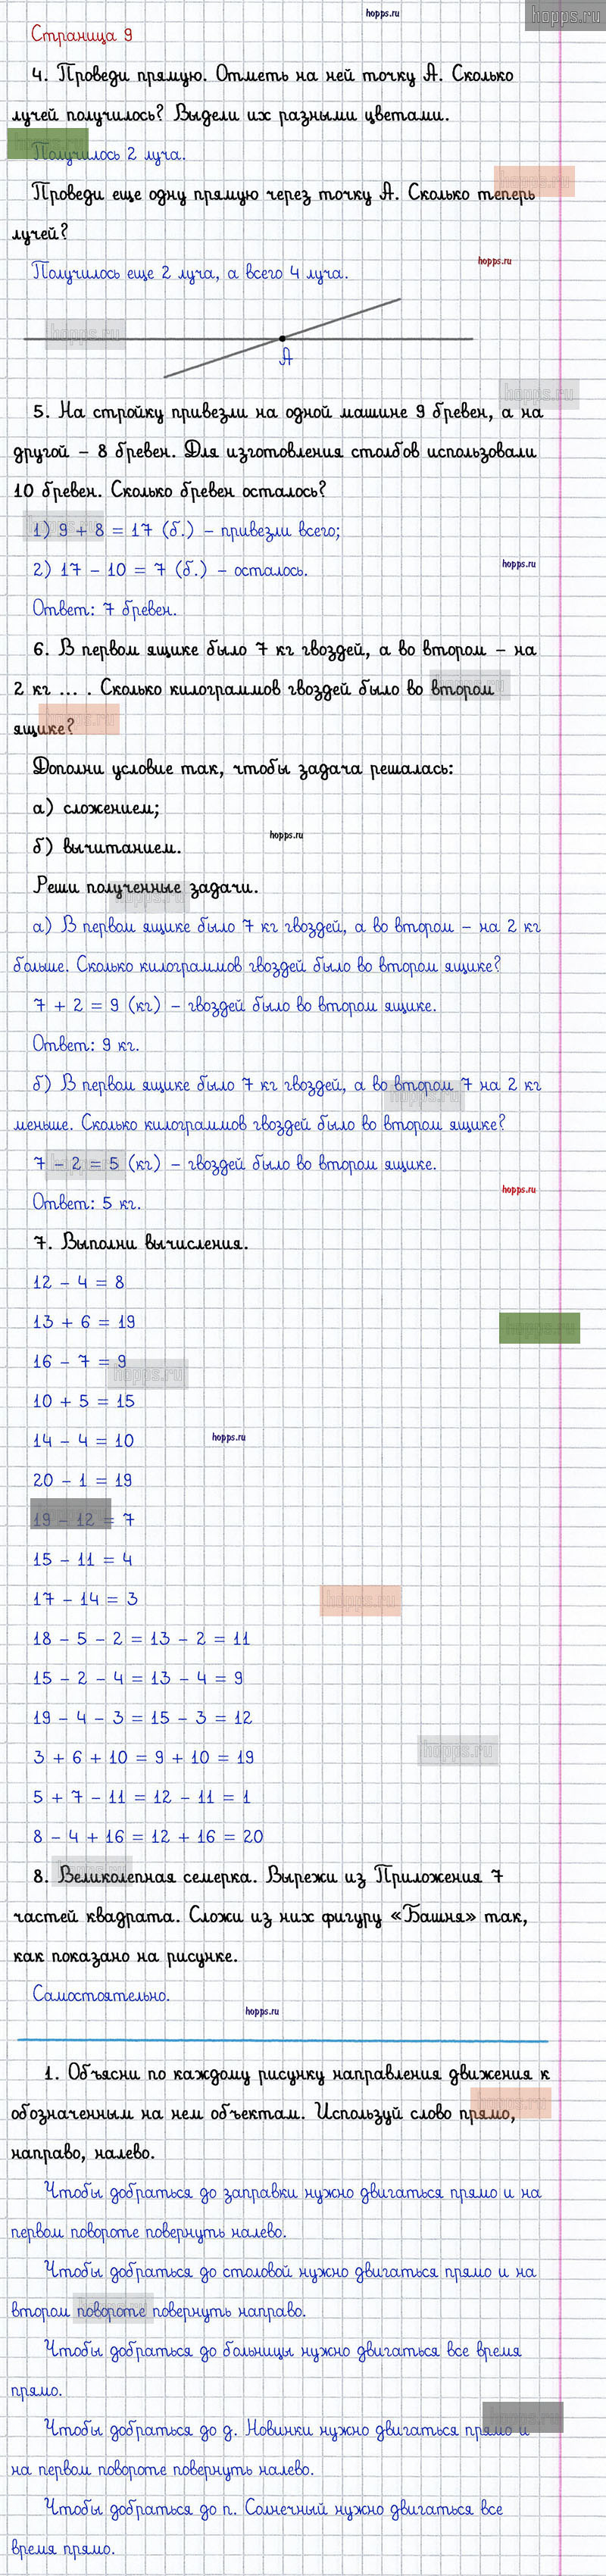 hopps.ru
hopps.ru
Страница 9
4. Проведи прямую. Отметь на ней точку А. Сколько
лучей получилось? Выдели их разными цветами.
Получилось 2 луча.
hopps.ru
Проведи еще одну прямую через точку А. Сколько теперь
лучей?
hopps.ru
Получилось еще 2 луча, а всего 4 луча.
hopps.ru
А
hopps.ru
5. На стройку привезли на одной машине 9 бревен, а на
другой – 8 бревен. Для изготовления столбов использовали
10 бревен. Сколько бревен осталось?
1) 9 + 8 = 17 (б.) – привезли всего;
2) 17 – 10 = 7 (б.) – осталось.
hopps.ru
Ответ: 7 бревен.
6. В первом ящике было 7 кг гвоздей, а во втором – на
2 кг ... . Сколько килограммов гвоздей было во втором
ящике?
Дополни условие так, чтобы задача решалась:
а) сложением;
hopps.ru
б) вычитанием.
Реши полученные задачи.
hopps.ru
а) В первом ящике было 7 кг гвоздей, а во втором – на 2 кг
больше. Сколько килограммов гвоздей было во втором ящике?
7 + 2 = 9 (кг) – гвоздей было во втором ящике.
Ответ: 9 кг.
б) В первом ящике было 7 кг гвоздей, а во втором 7 на 2 кг
hopps.ru
меньше. Сколько килограммов гвоздей было во втором ящике?
7 – 2 = 5 (кг) – гвоздей было во втором ящике.
hopps.ru
Ответ: 5 кг.
7. Выполни вычисления.
12 – 4 = 8
13 + 6 = 19
hopps.ru
16 – 7 = 9
hopps.ru
10 + 5 = 15
14 – 4 = 10
hopps.ru
20 – 1 = 19
19 – 12 = 7
15 – 11 = 4
17 – 14 = 3
hopps.ru
18 – 5 – 2 = 13 – 2 = 11
15 – 2 – 4 = 13 – 4 = 9
19 – 4 – 3 = 15 – 3 = 12
hopps.ru
3 + 6 + 10 = 9 + 10 = 19
5 + 7 – 11 = 12 – 11 = 1
8 – 4 + 16 = 12 + 16 = 20
8. Великолепная семерка. Вырежи из Приложения 7
частей квадрата. Сложи из них фигуру «Башня» так,
как показано на рисунке.
Самостоятельно.
hopps.ru
1. Объясни по каждому рисунку направления движения к
обозначенным на нем объектам. Используй слово прямо,
направо, налево.
Чтобы добраться до заправки нужно двигаться прямо и на
первом повороте повернуть налево.
Чтобы добраться до столовой нужно двигаться прямо и на
втором повороте повернуть направо.
Чтобы добраться до больницы нужно двигаться все время
прямо.
Чтобы добраться до д. Новинки нужно двигаться прямо и
на первом повороте повернуть налево.
Чтобы добраться до п. Солнечный нужно двигаться все
время прямо.